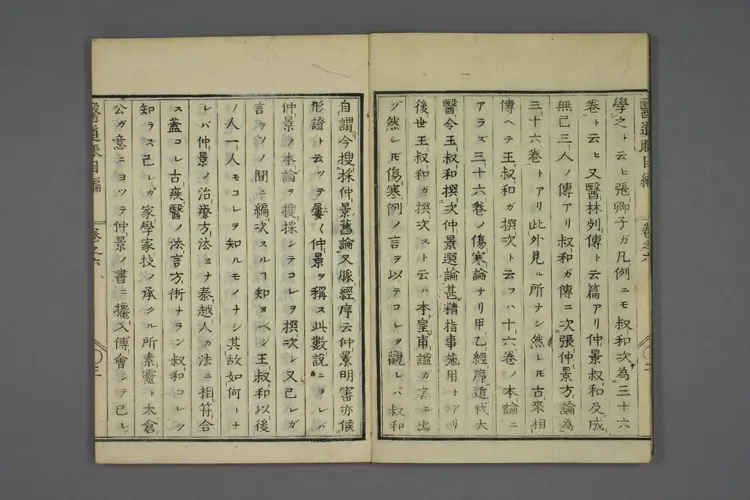 學之ト云ヒ張卿子ガ凡例ニモ叔和次為三十六
卷ト云ヒ又醫林列傳ト云篇アリ仲景叔和及成
無已三人ノ傳アリ叔和ガ傳ニ次張仲景方論為
三十六卷トアリ此外見ル所ナシ然レモ古來相
傳ヘテ王叔和ガ撰次ト云フハ十六卷ノ本論ニ
アラズ三十六卷ノ傷寒論ナリ甲乙經序近代太
醫令王叔和撰次仲景選論甚精指事施用トアリ
後世王叔和ガ撰次スト云ハ本皇甫謐ガ言ニ出
ヅ然レモ傷寒例ノ言ヲ以テコレヲ觀レバ叔和
醫道眼目編
卷之六
自謂今搜採仲景舊論又脈經序云仲景明審亦候
形證ト云ツテ屢〻仲景ヲ稱ス此數說ニヨレバ
仲景ノ本論ヲ搜採シテコレヲ撰次シ又己レガ
言ヲソノ間ニ編次スルヿ知ヌベシ王叔和以後
ノ人一人モコレヲ知ルモノナシ其故如何トナ
レバ仲景ノ治療方法ミナ秦越人ガ法ニ相符合
ス蓋コレ古疾醫ノ法言方術ナラン叔和コレヲ
知ラス己レガ家學家技ノ承クル所素靈ト太倉
公ガ意ニヨツテ仲景ノ書ニ攙入傅會シテ己レ
醫道眼目編
卷之六